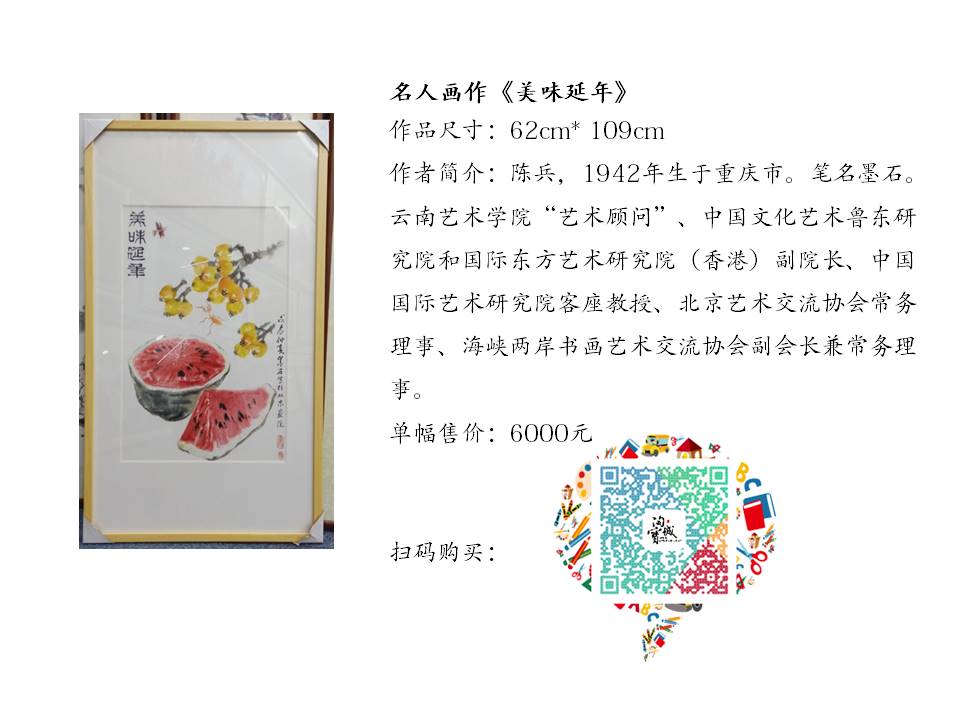 名人画作《美味延年》
作品尺寸：62cm* 109cm
作者简介：陈兵，1942年生于重庆市。笔名墨石。
云南艺术学院“艺术顾问”、中国文化艺术鲁东研
究院和国际东方艺术研究院（香港）副院长、中国
国际艺术研究院客座教授、北京艺术交流协会常务
理事、海峡两岸书画艺术交流协会副会长兼常务理
事。
单幅售价：6000元
扫码购买：
美味延年